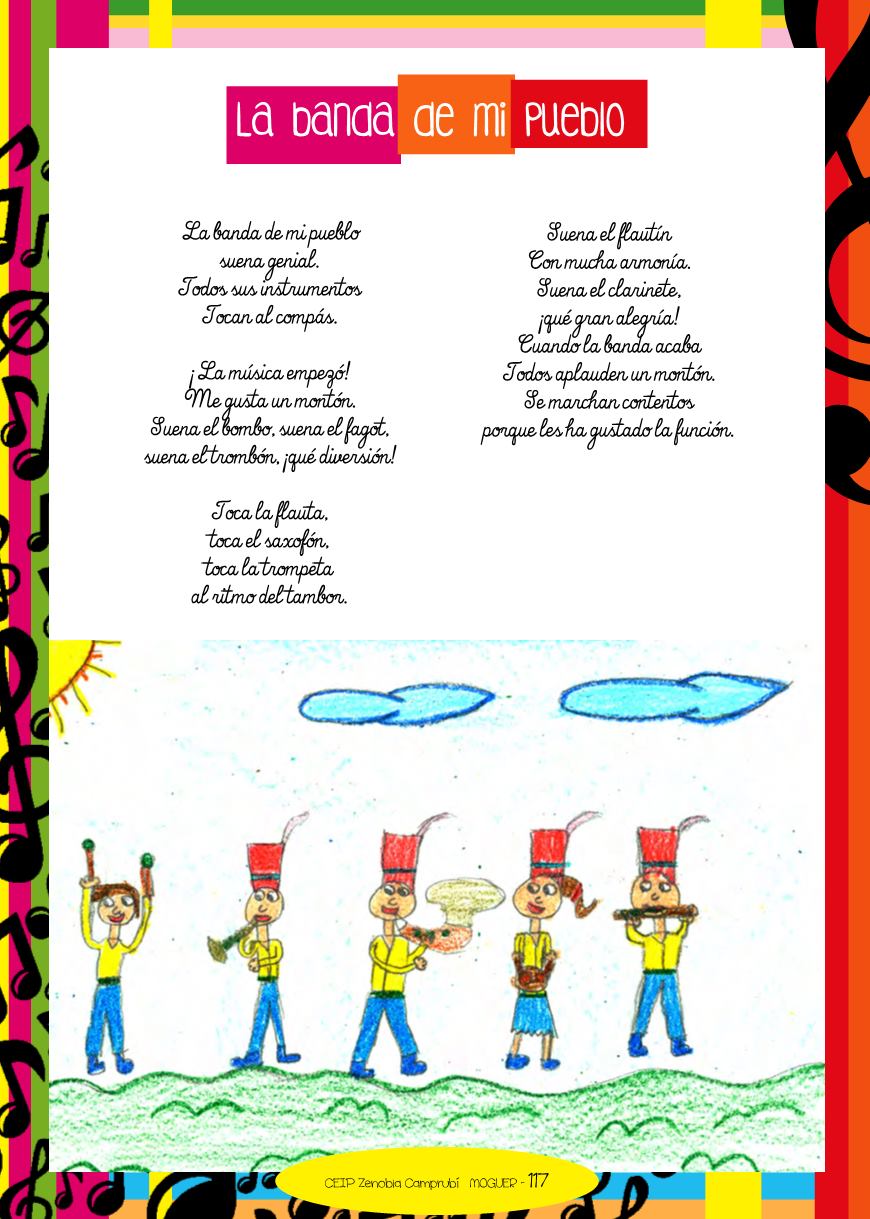 La banda de mi pueblo
La banda de mi pueblo
suena genial.
Todos sus instrumentos
Tocan al compás.
¡La música empezó!
Me gusta un montón.
Suena el bombo, suena el fagot,
suena el trombón, ¡qué diversión!
Toca la flauta,
toca el saxofón,
toca la trompeta
al ritmo del tambor.
Suena el flautín
Con mucha armonía.
Suena el clarinete,
¡qué gran alegría!
Cuando la banda acaba
Todos aplauden un montón.
Se marchan contentos
porque les ha gustado la función.
CEIP Zenobia Camprubí MOGUER - 117